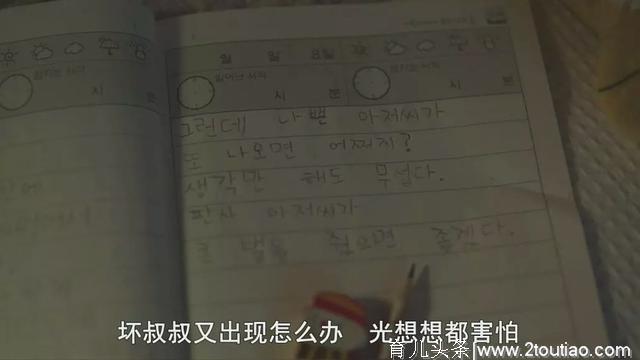 월 일 요일
잠자는 시각 일어난 시각 잠자는 시각
시 분 시 분 시 분
그런데 나쁜 아저씨가
또 나오면 어쩌지?
생각만 해도 무섭다.
판사 아저씨가
벌을 줬으면 좋겠다.
坏叔叔又出现怎么办 光想想都害怕
育儿头条 www.2toutiao.com